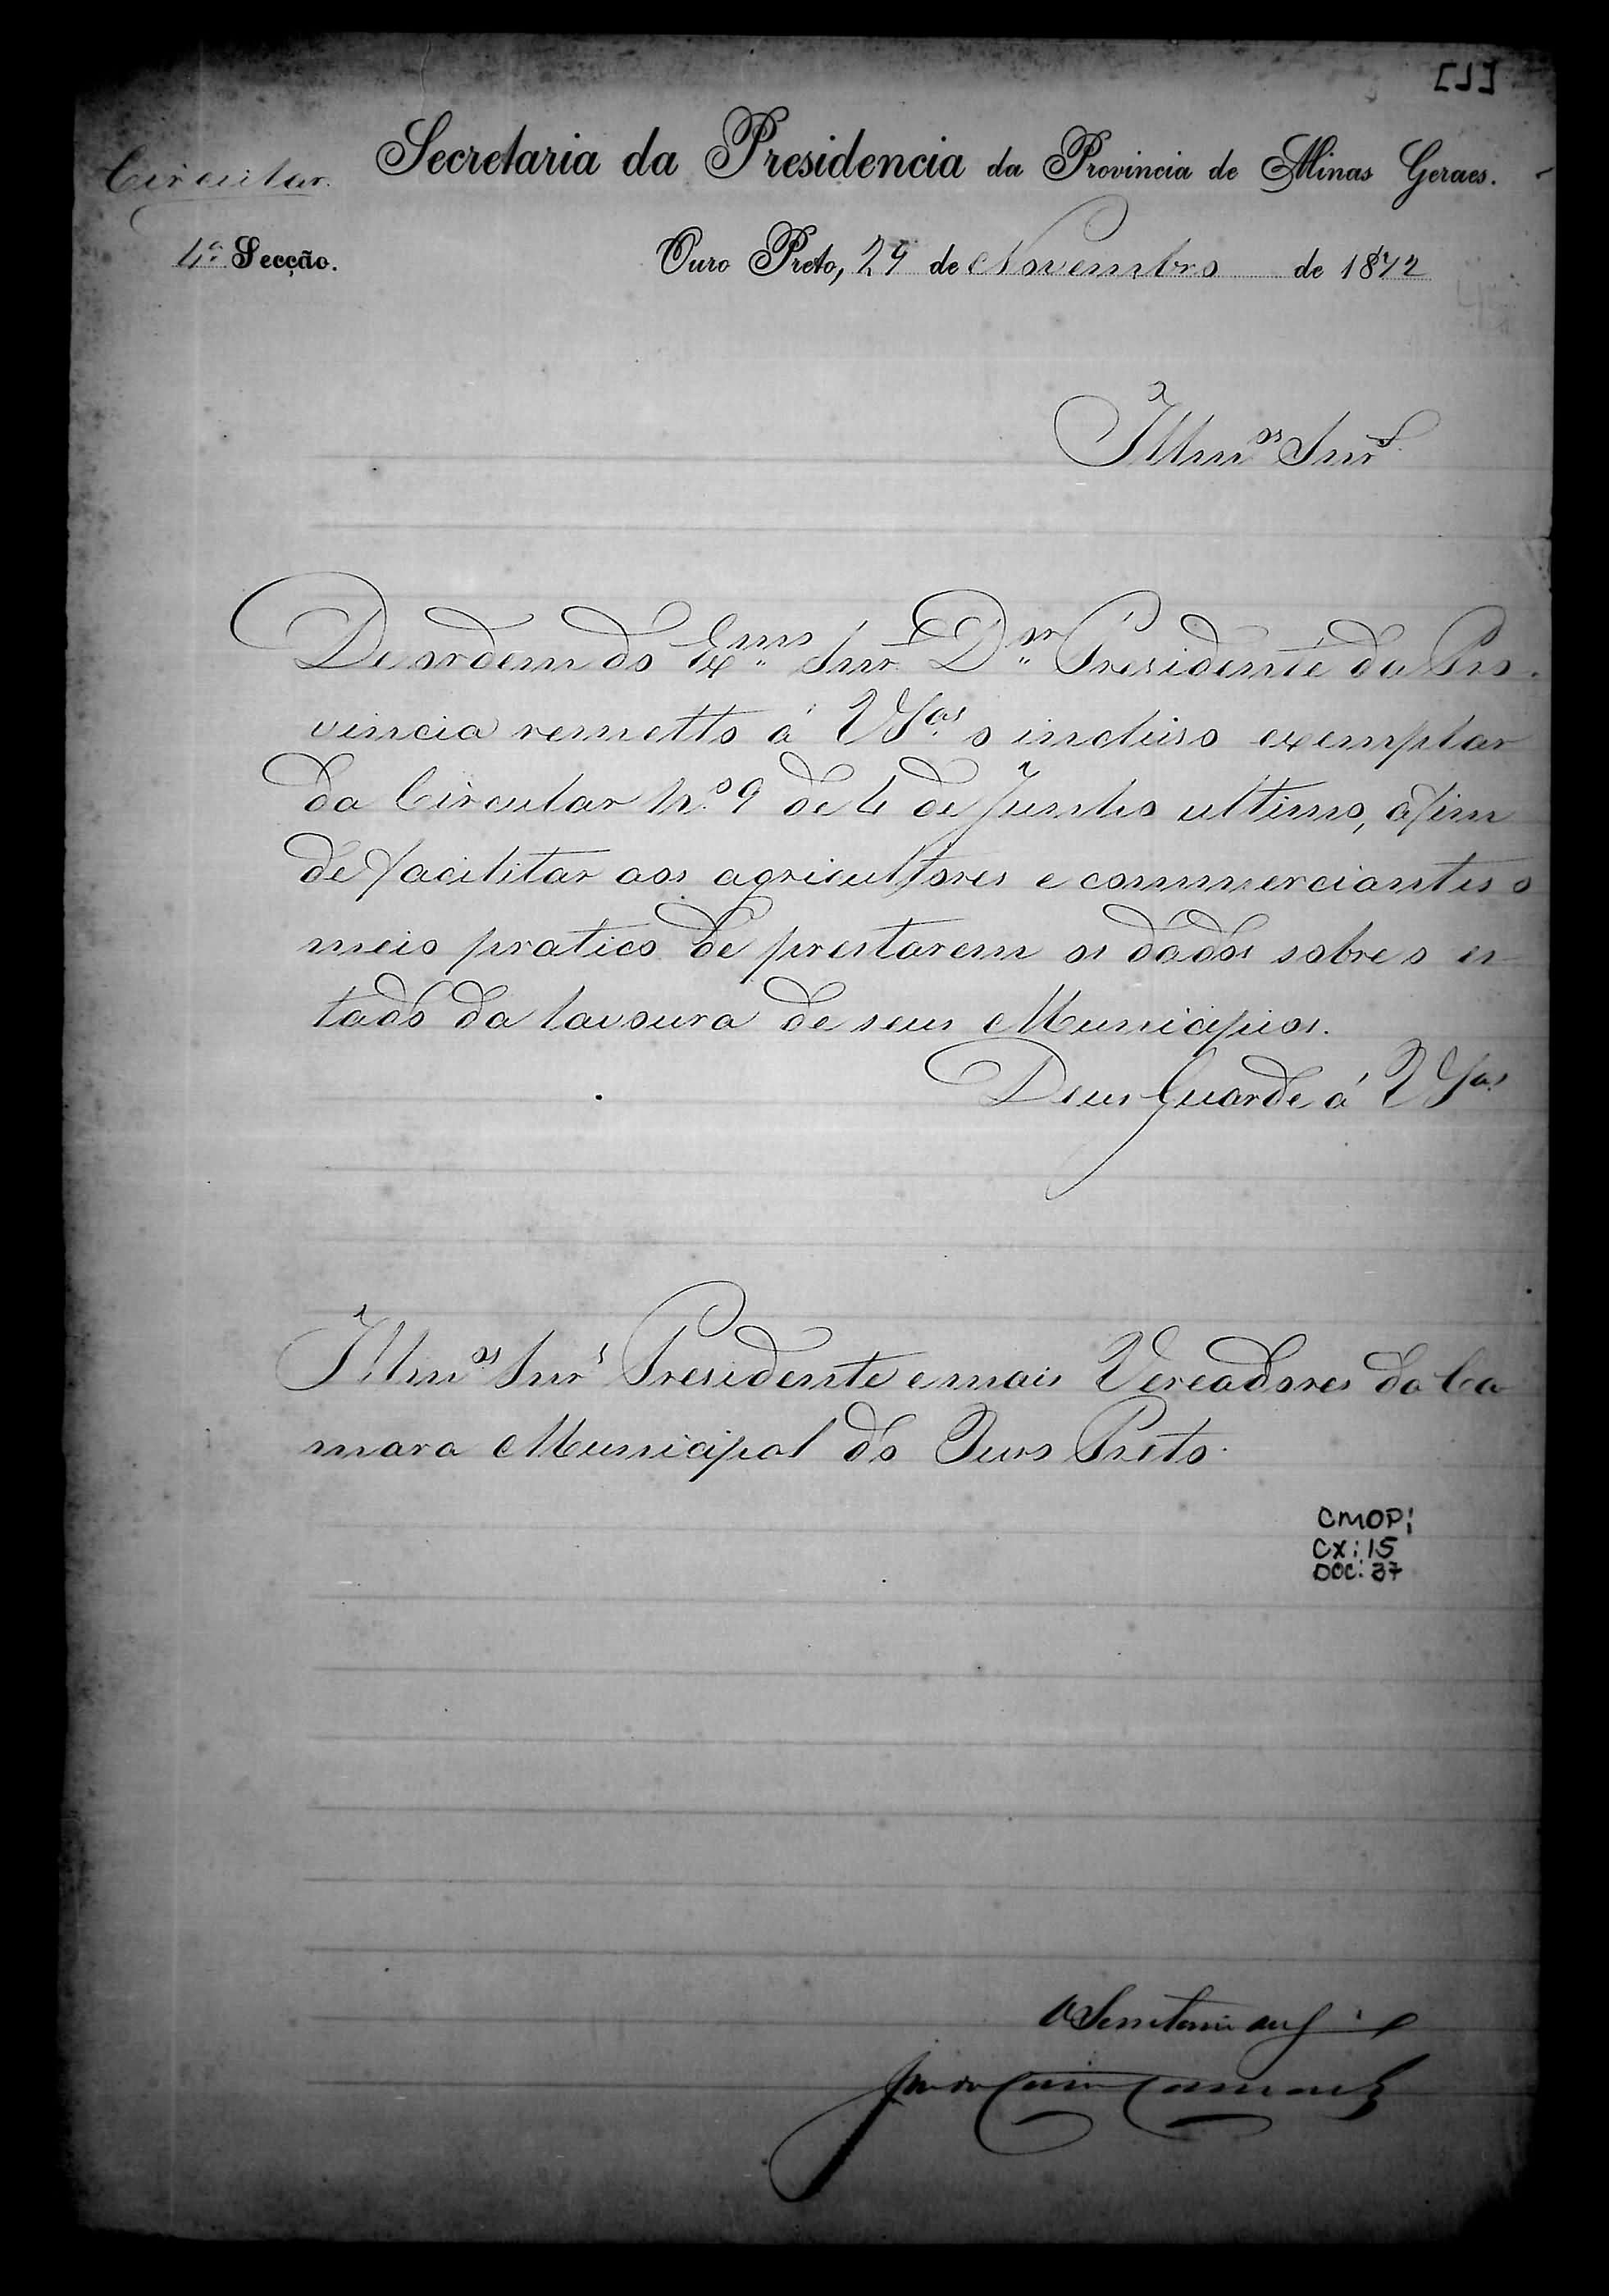 [1]
Circular.
Secretaria da Presidencia da Provincia de Minas Geraes.
4ª Secção.
Ouro Preto, 29 de Novembro de 1872
Illmos Snrs
De ordem do Exmo Snr Dor Presidente da Pro-
vincia remetto á VSas o incluso exemplar
da Circular Nº 9 de 4 de Junho ultimo, afim
de facilitar aos agricultores e commerciantes o
meio pratico de prestarem os dados sobre o es-
tado da lavoura de seus Municipios.
Deus Guarde á VSas
Illmos Snrs Presidente e mais Vereadores da Ca-
mara Municipal do Ouro Preto.
CMOP:
CX: 15
DOC: 37
O Secretario